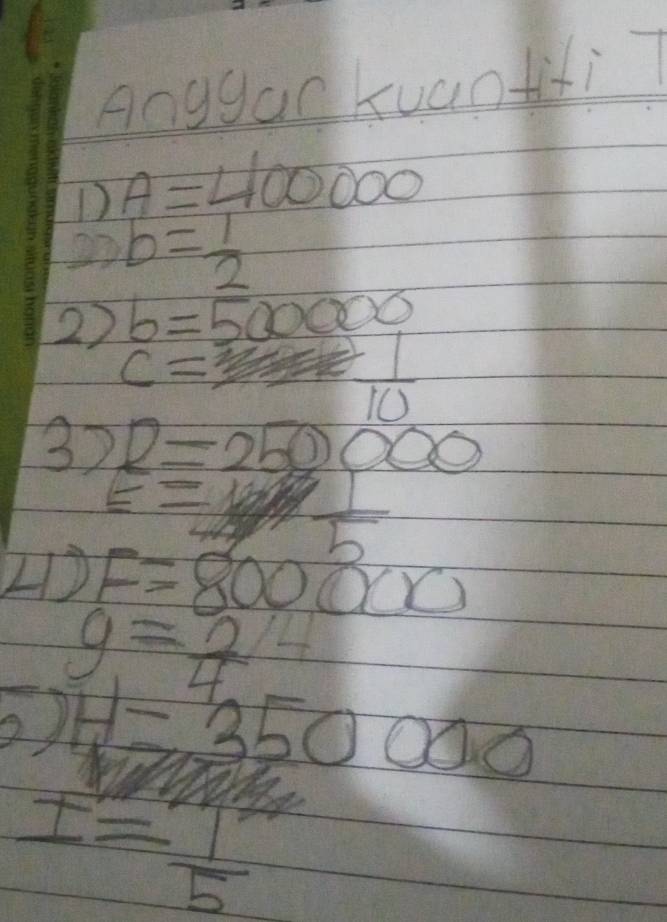 Anggar kuantiti T
1) A = 400000
b = 1/2
2) b = 500000
c = 1/10
3) D = 250 000
E = 1/5
4) F = 800 000
g = 2/4
5) H = 350 000
I = 1/5